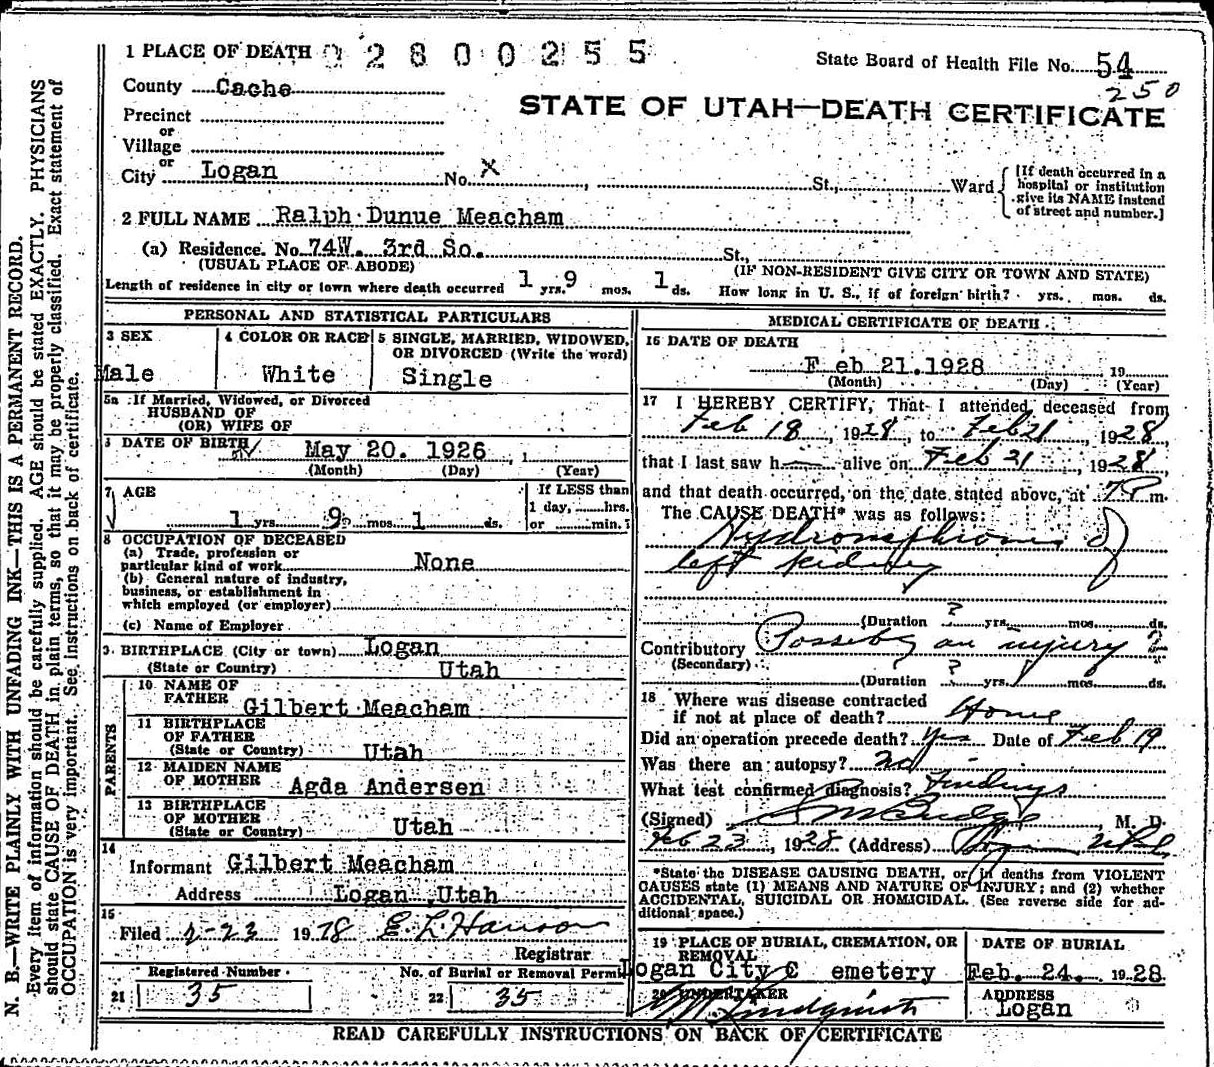 1 PLACE OF DEATH 02800255
State Board of Health File No. 54
250
County Cache
STATE OF UTAH—DEATH CERTIFICATE
Precinct
or
Village
or
City Logan No. X St., Ward
[If death occurred in a hospital or institution give its NAME instead of street and number.]
2 FULL NAME Ralph Dunue Meacham
(a) Residence. No. 74W. 3rd So. St.,
(USUAL PLACE OF ABODE) (IF NON-RESIDENT GIVE CITY OR TOWN AND STATE)
Length of residence in city or town where death occurred 1 yrs. 9 mos. 1 ds. How long in U. S., if of foreign birth? yrs. mos. ds.
PERSONAL AND STATISTICAL PARTICULARS
3 SEX
Male
4 COLOR OR RACE
White
5 SINGLE, MARRIED, WIDOWED,
OR DIVORCED (Write the word)
Single
5a If Married, Widowed, or Divorced
HUSBAND OF
(OR) WIFE OF
DATE OF BIRTH May 20. 1926
(Month) (Day) (Year)
7 AGE
1 yrs. 9 mos. 1 ds.
If LESS than
1 day, hrs.
or min.
8 OCCUPATION OF DECEASED
(a) Trade, profession or
particular kind of work None
(b) General nature of industry,
business, or establishment in
which employed (or employer)
(c) Name of Employer
9. BIRTHPLACE (City or town) Logan
(State or Country) Utah
PARENTS
10 NAME OF
FATHER Gilbert Meacham
11 BIRTHPLACE
OF FATHER
(State or Country) Utah
12 MAIDEN NAME
OF MOTHER Agda Andersen
13 BIRTHPLACE
OF MOTHER
(State or Country) Utah
14
Informant Gilbert Meacham
Address Logan, Utah
15
Filed 2-23 1928 E. L. Hanson
Registrar
Registered Number
21 35
No. of Burial or Removal Permit
22 35
MEDICAL CERTIFICATE OF DEATH
16 DATE OF DEATH
Feb 21. 1928 19
(Month) (Day) (Year)
17 I HEREBY CERTIFY, That I attended deceased from
Feb 18, 1928, to Feb 21, 1928
that I last saw h alive on Feb 21, 1928,
and that death occurred, on the date stated above, at 7 P m.
The CAUSE DEATH* was as follows:
Hydronephrosis of
left kidney
(Duration ? yrs. mos. ds.
Contributory Possibly an injury ?
(Secondary)
(Duration ? yrs. mos. ds.
18 Where was disease contracted
if not at place of death? Home
Did an operation precede death? Yes Date of Feb 19
Was there an autopsy? no
What test confirmed diagnosis? Findings
(Signed) Budge, M. D.
Feb 23, 1928 (Address) Logan Utah
*State the DISEASE CAUSING DEATH, or, in deaths from VIOLENT
CAUSES state (1) MEANS AND NATURE OF INJURY; and (2) whether
ACCIDENTAL, SUICIDAL OR HOMICIDAL. (See reverse side for ad-
ditional space.)
19 PLACE OF BURIAL, CREMATION, OR
REMOVAL
Logan City Cemetery
DATE OF BURIAL
Feb. 24. 1928
20 UNDERTAKER
Lindquist
ADDRESS
Logan
READ CAREFULLY INSTRUCTIONS ON BACK OF CERTIFICATE
N. B.—WRITE PLAINLY WITH UNFADING INK—THIS IS A PERMANENT RECORD.
Every item of information should be carefully supplied. AGE should be stated EXACTLY. PHYSICIANS
should state CAUSE OF DEATH in plain terms, so that it may be properly classified. Exact statement of
OCCUPATION is very important. See instructions on back of certificate.